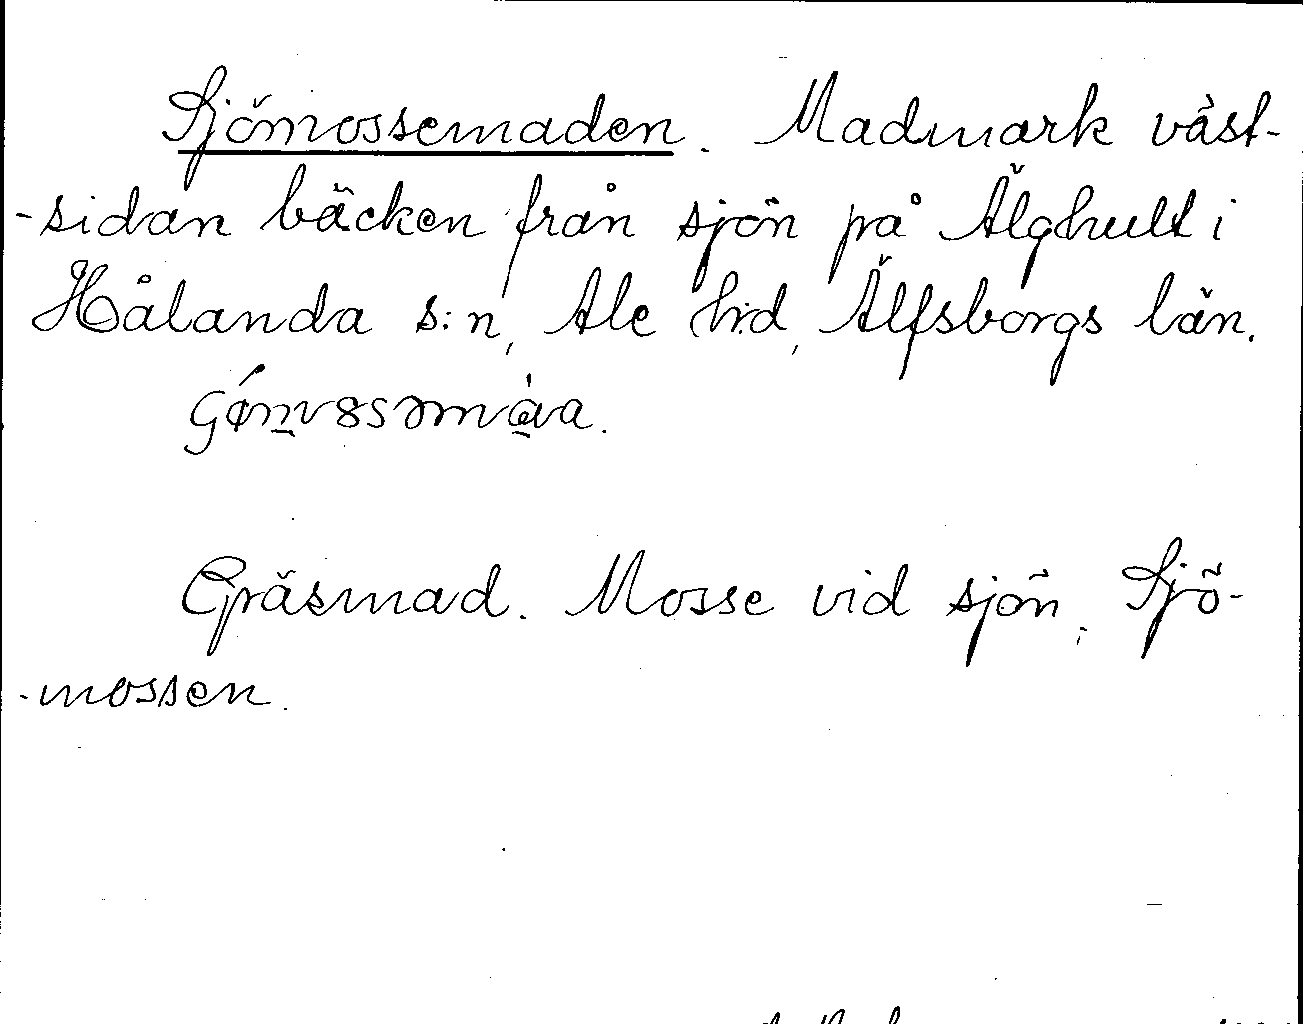 Sjömossemaden. Madmark väst-
-sidan bäcken från sjön på Älghult i
Hålanda s:n, Ale hrd, Älfsborgs län.
Gräsmad. Mosse vid sjön, Sjö-
-mossen.